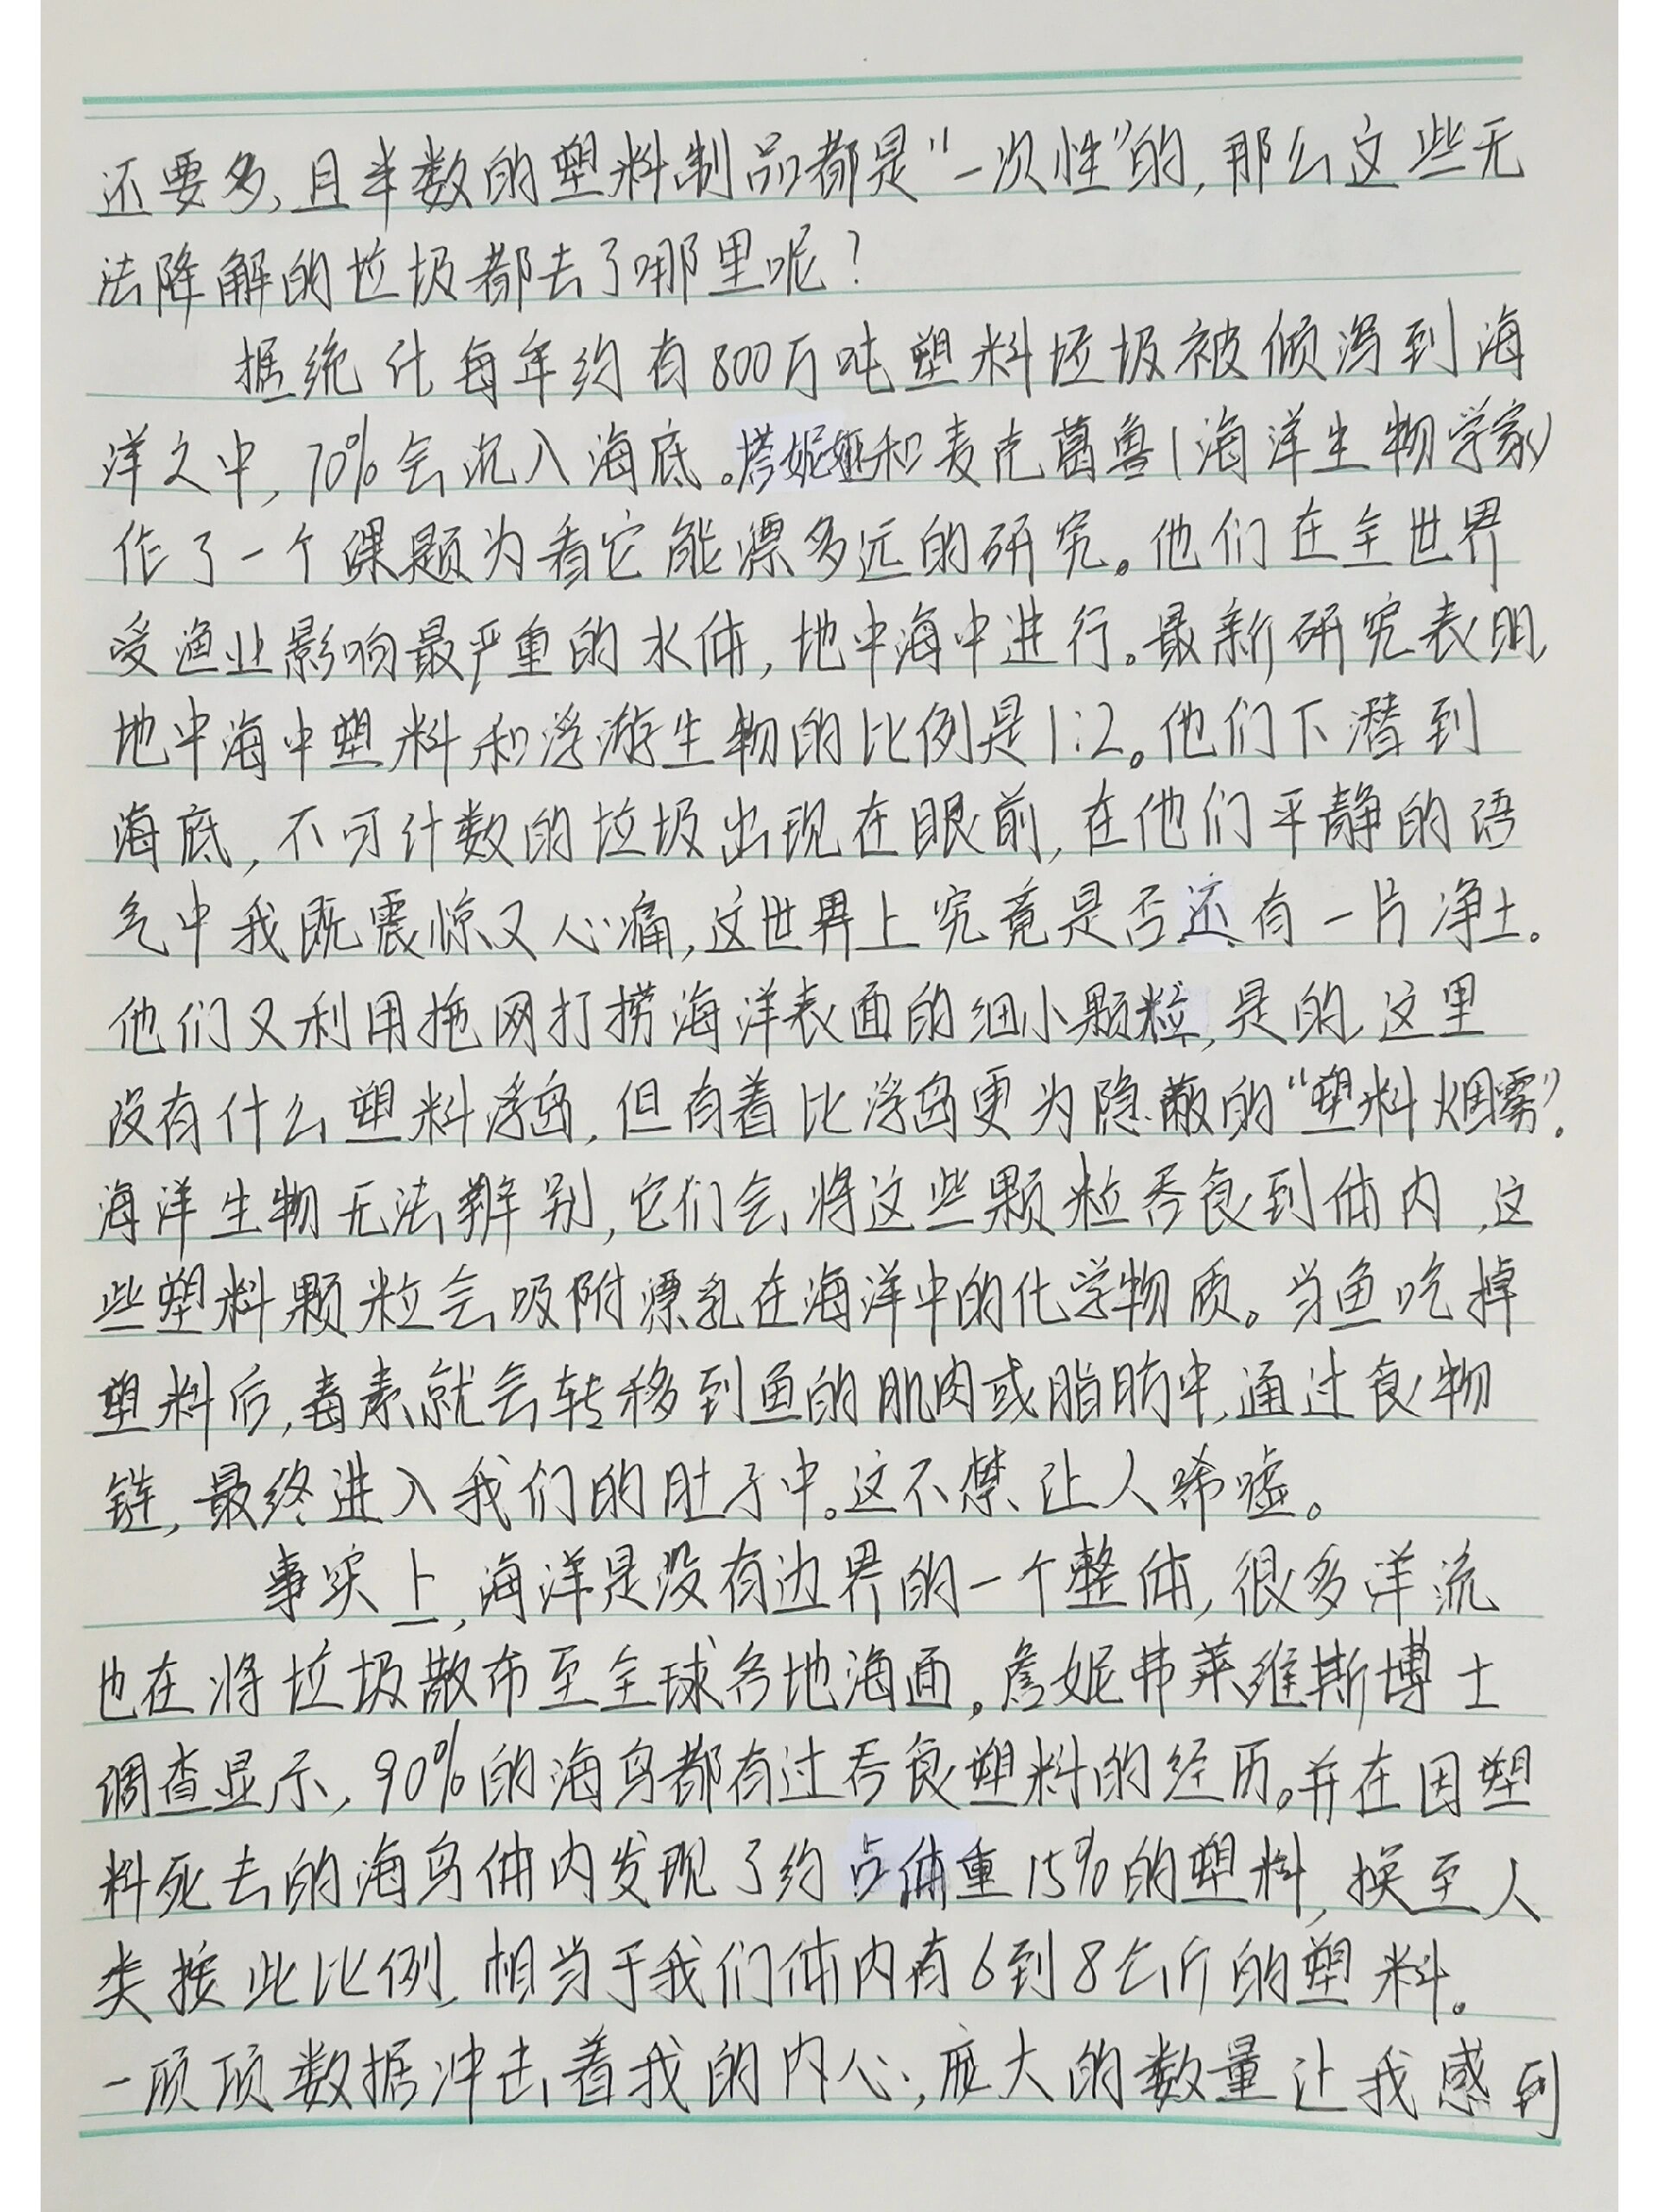 还要多,且半数的塑料制品都是“一次性”的,那么这些无
法降解的垃圾都去了哪里呢?
据统计每年约有800万吨塑料垃圾被倾泻到海
洋之中,70%会沉入海底。塔妮娅和麦克葛兽(海洋生物学家)
作了一个课题为看它能漂多远的研究。他们在全世界
受渔业影响最严重的水体,地中海中进行。最新研究表明,
地中海中塑料和浮游生物的比例是1:2。他们下潜到
海底,不可计数的垃圾出现在眼前,在他们平静的语
气中我既震惊又心痛,这世界上究竟是否还有一片净土。
他们又利用拖网打捞海洋表面的细小颗粒,是的,这里
没有什么塑料浮岛,但有着比浮岛更为隐蔽的“塑料烟雾”.
海洋生物无法辨别,它们会将这些颗粒吞食到体内,这
些塑料颗粒会吸附漂乱在海洋中的化学物质。当鱼吃掉
塑料后,毒素就会转移到鱼的肌肉或脂肪中,通过食物
链,最终进入我们的肚子中。这不禁让人唏嘘。
事实上,海洋是没有边界的一个整体,很多洋流
也在将垃圾散布至全球各地海面。詹妮弗莱维斯博士
调查显示,90%的海鸟都有过吞食塑料的经历。并在因塑
料死去的海鸟体内发现了约占体重15%的塑料,换至人
类按此比例,相当于我们体内有6到8公斤的塑料。
一项项数据冲击着我的内心,庞大的数量让我感到